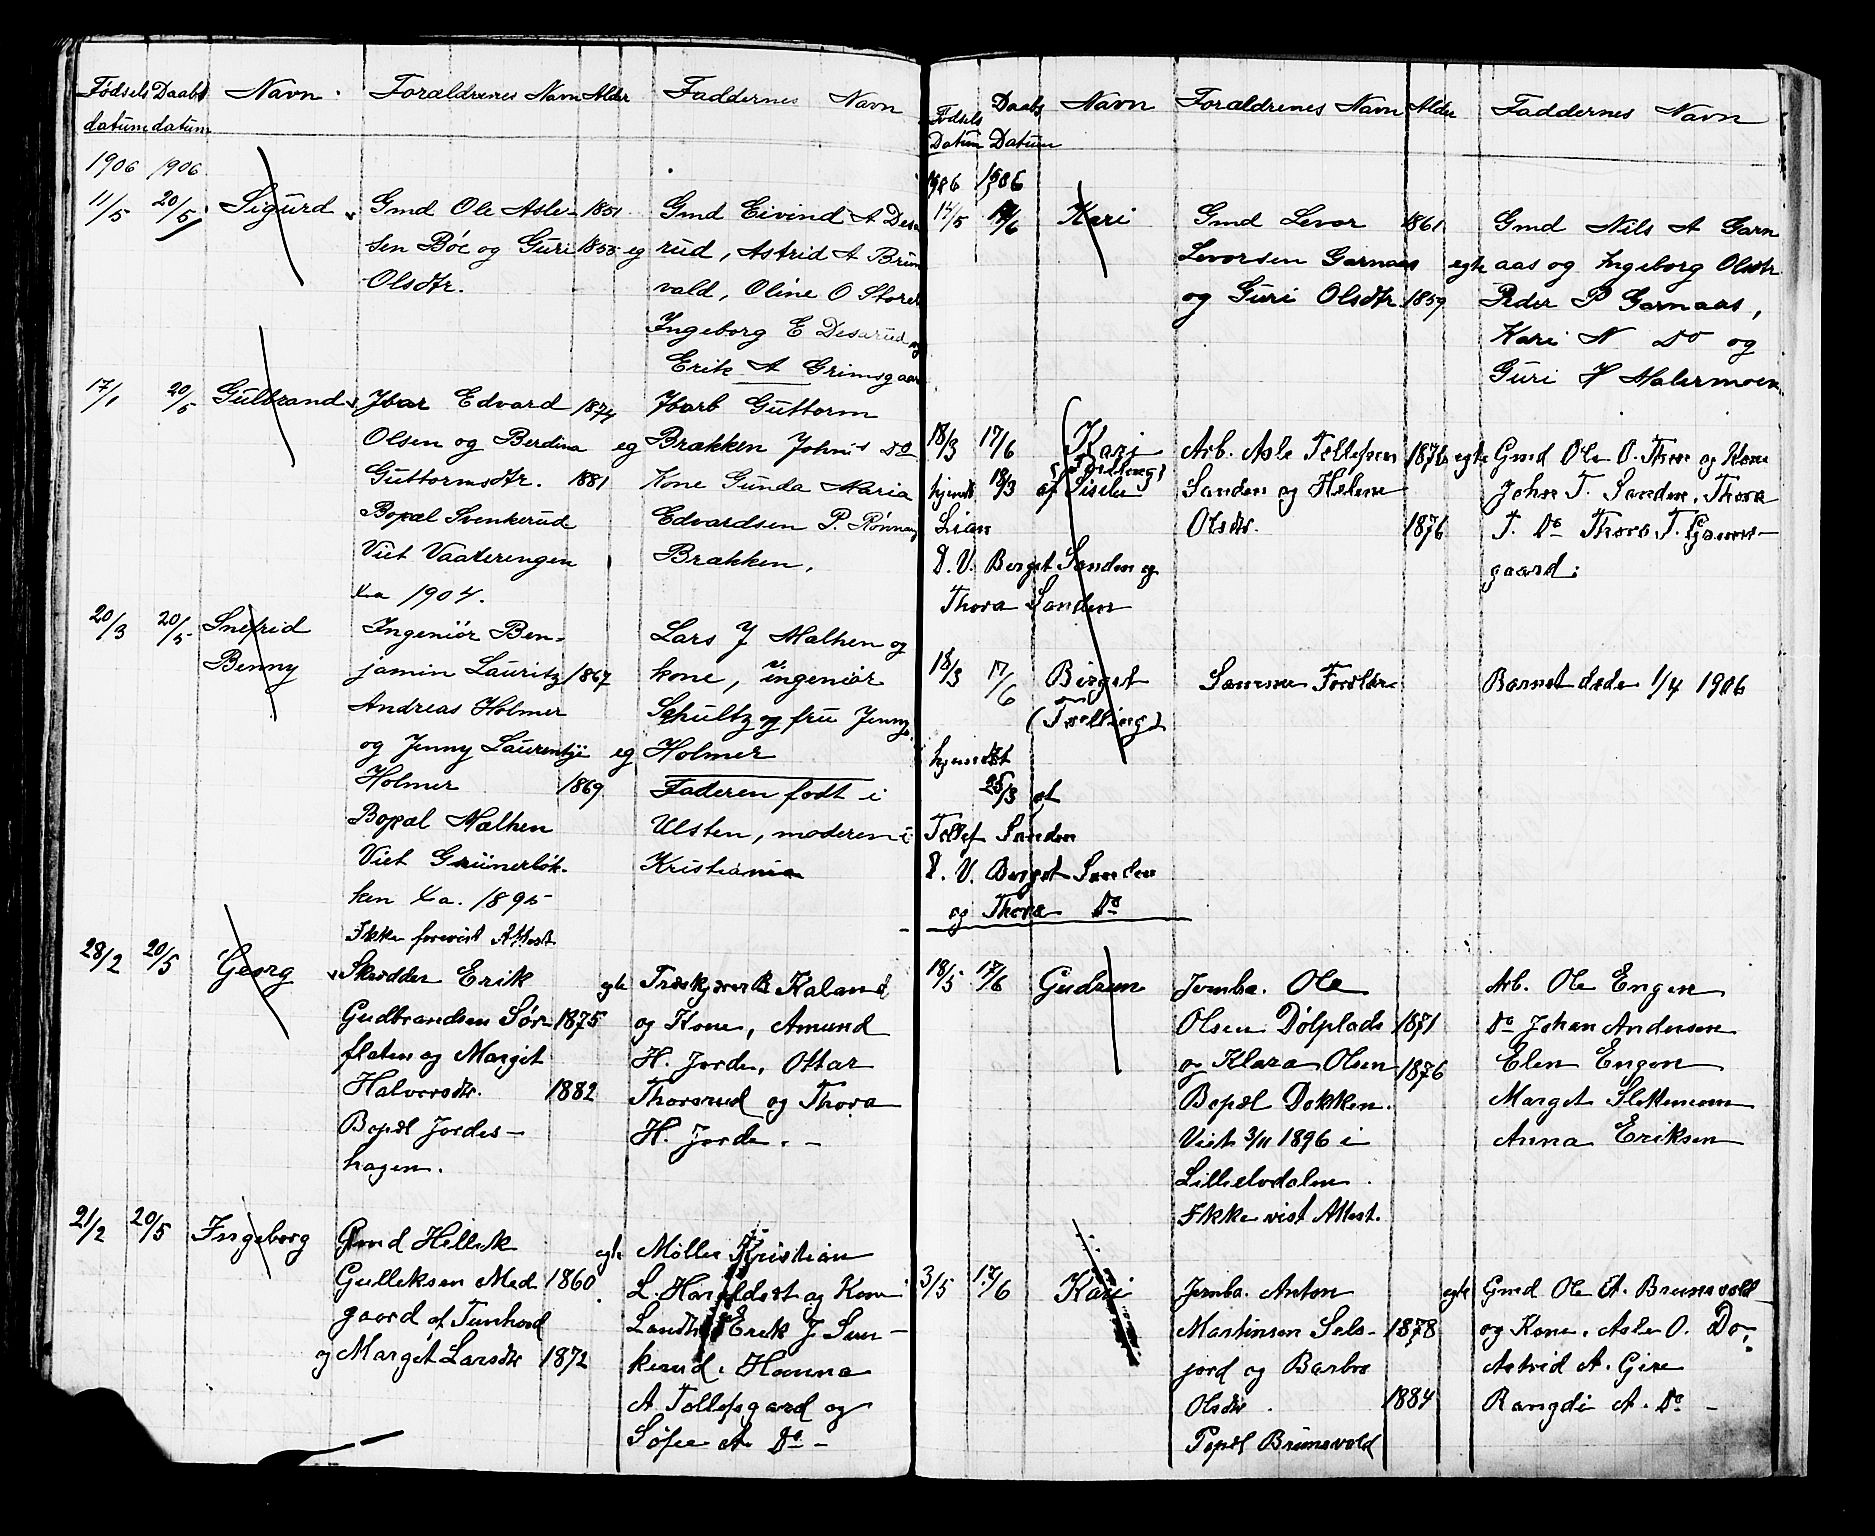 Fødsels Daabs Navn. Forældrenes Navn Alder Faddernes Navn
datum datum
1906 1906
11/5 20/5 Sigurd Gmd Ole Asle- 1851 Gmd Eivind A Desa
sen Bøe og Guri 1855 eg rud, Astrid A Brun
Olsdtr. vald, Oline O Store
Ingeborg E Desarud og
Erik A Grimsgaar
17/1 20/5 Gulbrand Ivar Edvard 1874 Guttorm
Olsen og Berdina eg Brækken Johnis do
Guttormsdtr. 1881 Kone Gunda Maria
Bopæl Svenkerud Edvardsen P. Rønnaug
Viet Vaalerengen Brækken.
1904.
20/3 20/5 Snefrid Ingeniør Ben- Lars J Mælhen og
Benny jamin Lauritz 1867 kone, ingeniør
Andreas Holmer Schultz og fru Jenny
og Jenny Laurentze eg Holmer
Holmer 1869 Faderen født i
Bopæl Mælhen Ulsten, moderen i
Viet Grünerløk- Kristiania
ken Ca. 1895
Ikke forevist Attest
28/2 20/5 Georg Skrædder Erik egte Træskjærer B Kaland
Gudbrandsen Sør- 1875 og Kone, Amund
flaten og Margit H. Jorde, Ottar
Halvorsdtr. 1882 Thorsrud og Thora
Bopæl Jordes- H. Jorde. -
hagen.
21/2 20/5 Ingeborg Gmd Hellik egte Møller Kristian
Gulleksen Med 1860 L. Haraldset og Kone
gaard af Tunhovd Landh Erik J Sven-
og Margit Larsdtr 1872 kerud, Hanna
A Tollefsgaard og
Sofie A. Do -
Fødsels Daabs Navn Forældrenes Navn Alder Faddernes Navn
Datum Datum
1906 1906
14/5 17/6 Kari Gmd Levor 1861 Gmd Nils A Garn
Levorsen Garnaas egte aas og Ingeborg Olsdtr
og Guri Olsdtr 1859 Peder P Garnaas,
Kari N Do og
Guri H Halermoen
18/3 17/6 Kari Arb. Asle Tollefsen 1876 egte Gmd Ole O. Thoe og Kone
(Tvilling)
hjemdt 18/3 af Sisele Sanden og Helene John T. Sanden, Thora
Lian Olsdtr. 1876 T. Do Thora T.
D. V. Berget Sanden og gaard.
Thora Sanden
18/3 17/6 Birget Samme Forældre Barnet døde 1/4 1906
(Tvilling)
hjemdøbt
25/3 af
Tollef Sanden
D. V. Berget Sanden
og Thora Do
18/5 17/6 Gudrun Jernba. Ole Arb. Ole Engen
Olsen Dølplads 1871 Do Johan Andersen
og Klara Olsen 1876 Elen Engen
Bopæl Dokken. Marget Slettemoen
Viet 3/11 1896 i Anna Eriksen
Lilleelvdalen
Ikke vist Attest.
3/5 17/6 Kari Jernba. Anton egte Gmd Ole A. Brunsvold
Martinsen Sels- 1878 og Kone, Asle O. Do,
jord og Barbro Astrid A. Gire
Olsdtr. 1884 Rangdi A. Do -
Bopæl Brunsvold